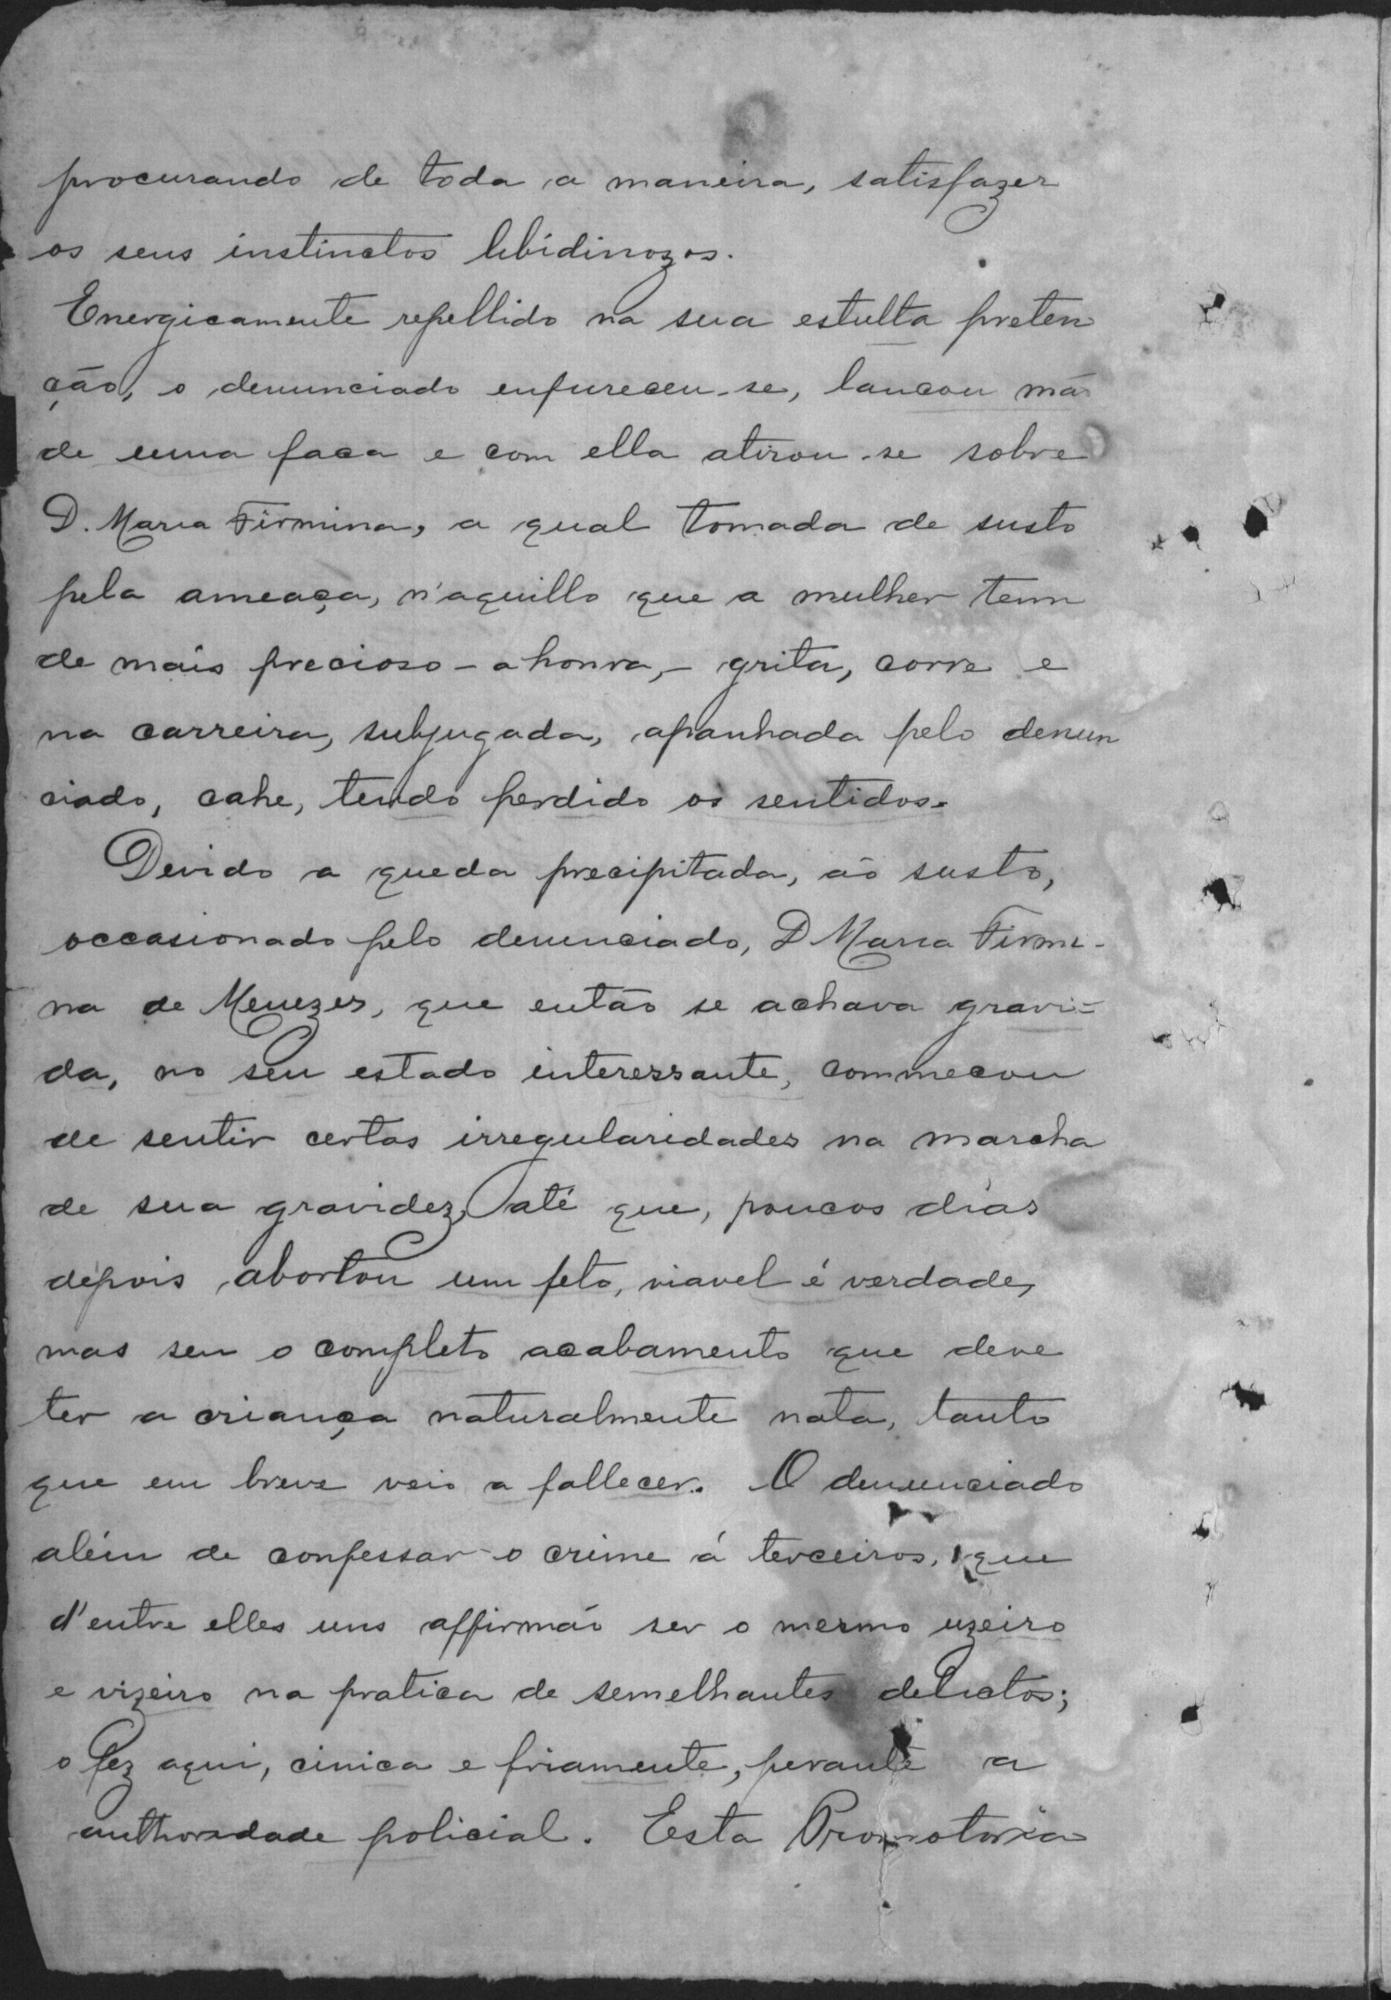 procurando de toda a maneira, satisfazer
os seus instinctos libidinozos.
Energicamente repellido na sua estulta preten
ção, o denunciado enfureceu-se, lancou mão
de uma faca e com ella atirou-se sobre
D. Maria Firmina, a qual tomada de susto
pela ameaça, n'aquillo que a mulher tem
de mais precioso - a honra, - grita, corre e
na carreira, subjugada, apanhada pelo denun
ciado, cahe, tendo perdido os sentidos.
Devido a queda precipitada, ao susto,
occasionado pelo denunciado, D Maria Firmi-
na de Menezes, que então se achava gravi-
da, no seu estado interessante, commecou
de sentir certas irregularidades na marcha
de sua gravidez, até que, poucos dias
depois abortou um feto, viavel é verdade,
mas sem o completo acabamento que deve
ter a criança naturalmente nata, tanto
que em breve veio a fallecer. O denunciado
além de confessar o crime á terceiros, que
d'entre elles uns affirmão ser o mesmo uzeiro
e vizeiro na pratica de semelhantes delictos;
o fez aqui, cinica e friamente, perante a
authoridade policial. Esta Promotoria